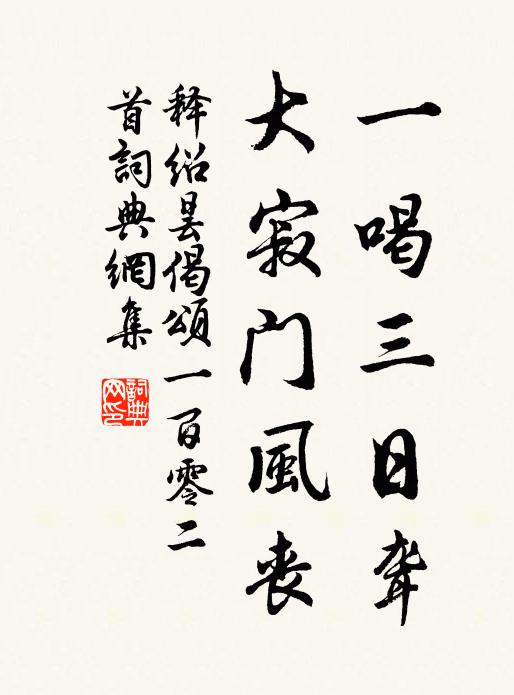 一喝三日聋
大寂门風丧
释绍昙偈頌一百零二
首詞典網集
詞典
网印